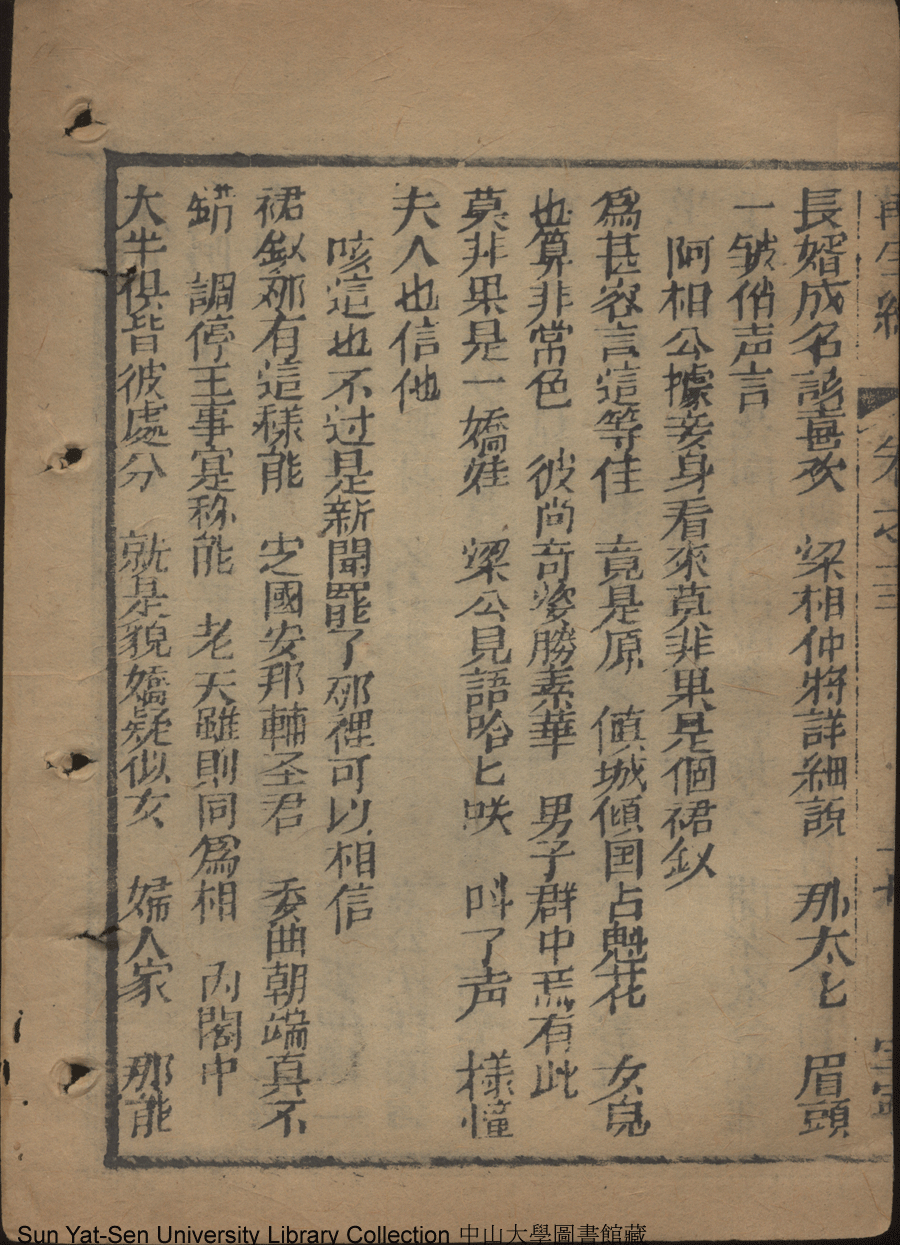 再生緣 卷之三
長婿成名說喜欢 梁相仲將詳細說 那太匕 眉頭
一皱俏声言
阿相公據妾身看來莫非果是個裙釵
為甚容言這等佳 竟是原 傾城傾国占魁花 女皃
也算非常色 彼尚奇姿勝素華 男子群中焉有此
莫非果是一嬌娃 梁公見語哈匕咲 叫了声 様憧
夫人也信他
咳這也不过是新聞罷了那裡可以相信
裙釵那有這様能 定國安邦輔圣君 委曲朝端真不
錯 調停王事寔称能 老天雖則同為相 内閣中
大半俱皆彼處分 就是貌嬌疑似女 婦人家 那能
Sun Yat-Sen University Library Collection 中山大學圖書館藏